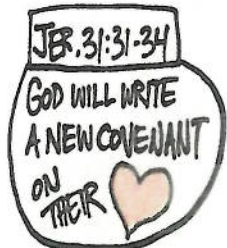 JER. 31:31-34
GOD WILL WRITE
A NEW COVENANT
ON
THEIR